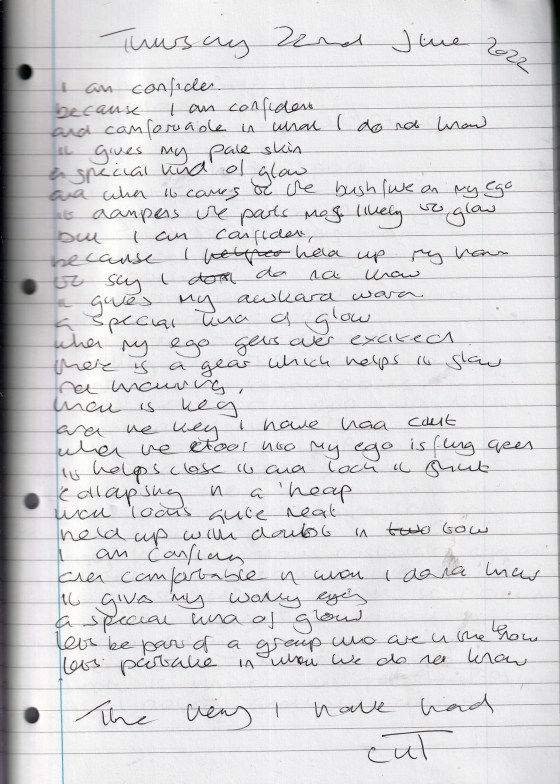 Thursday 22nd June 2022
I am confiden.
because I am confident
and comfortable in what I do not know
it gives my pale skin
a special kind of glow
and when it comes to the bush fire on my ego
it dampers the parts most likely to glow
but I am confident,
because I held up my hand
to say I dont do not know
it gives my awkard warn
a special kind of glow
when my ego gets over excited
there is a gear which helps it slow
not knowing,
know is key
and the key I have had cut
when the door into my ego is flung open
it helps close it and lock it shut
collapsing in a heap
which looks quite neat
held up with double in two bow
I am confident
and comfortable in what I do not know
it gives my worky eyes
a special kind of glow
lets be part of a group who are in the know
lets partake in what we do not know
The key I have had
cut